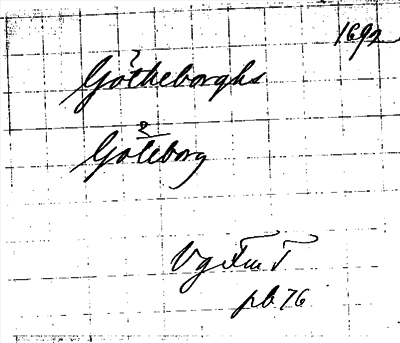 1692
Götheborghs
Göteborg
Vg Fm T
pb 76